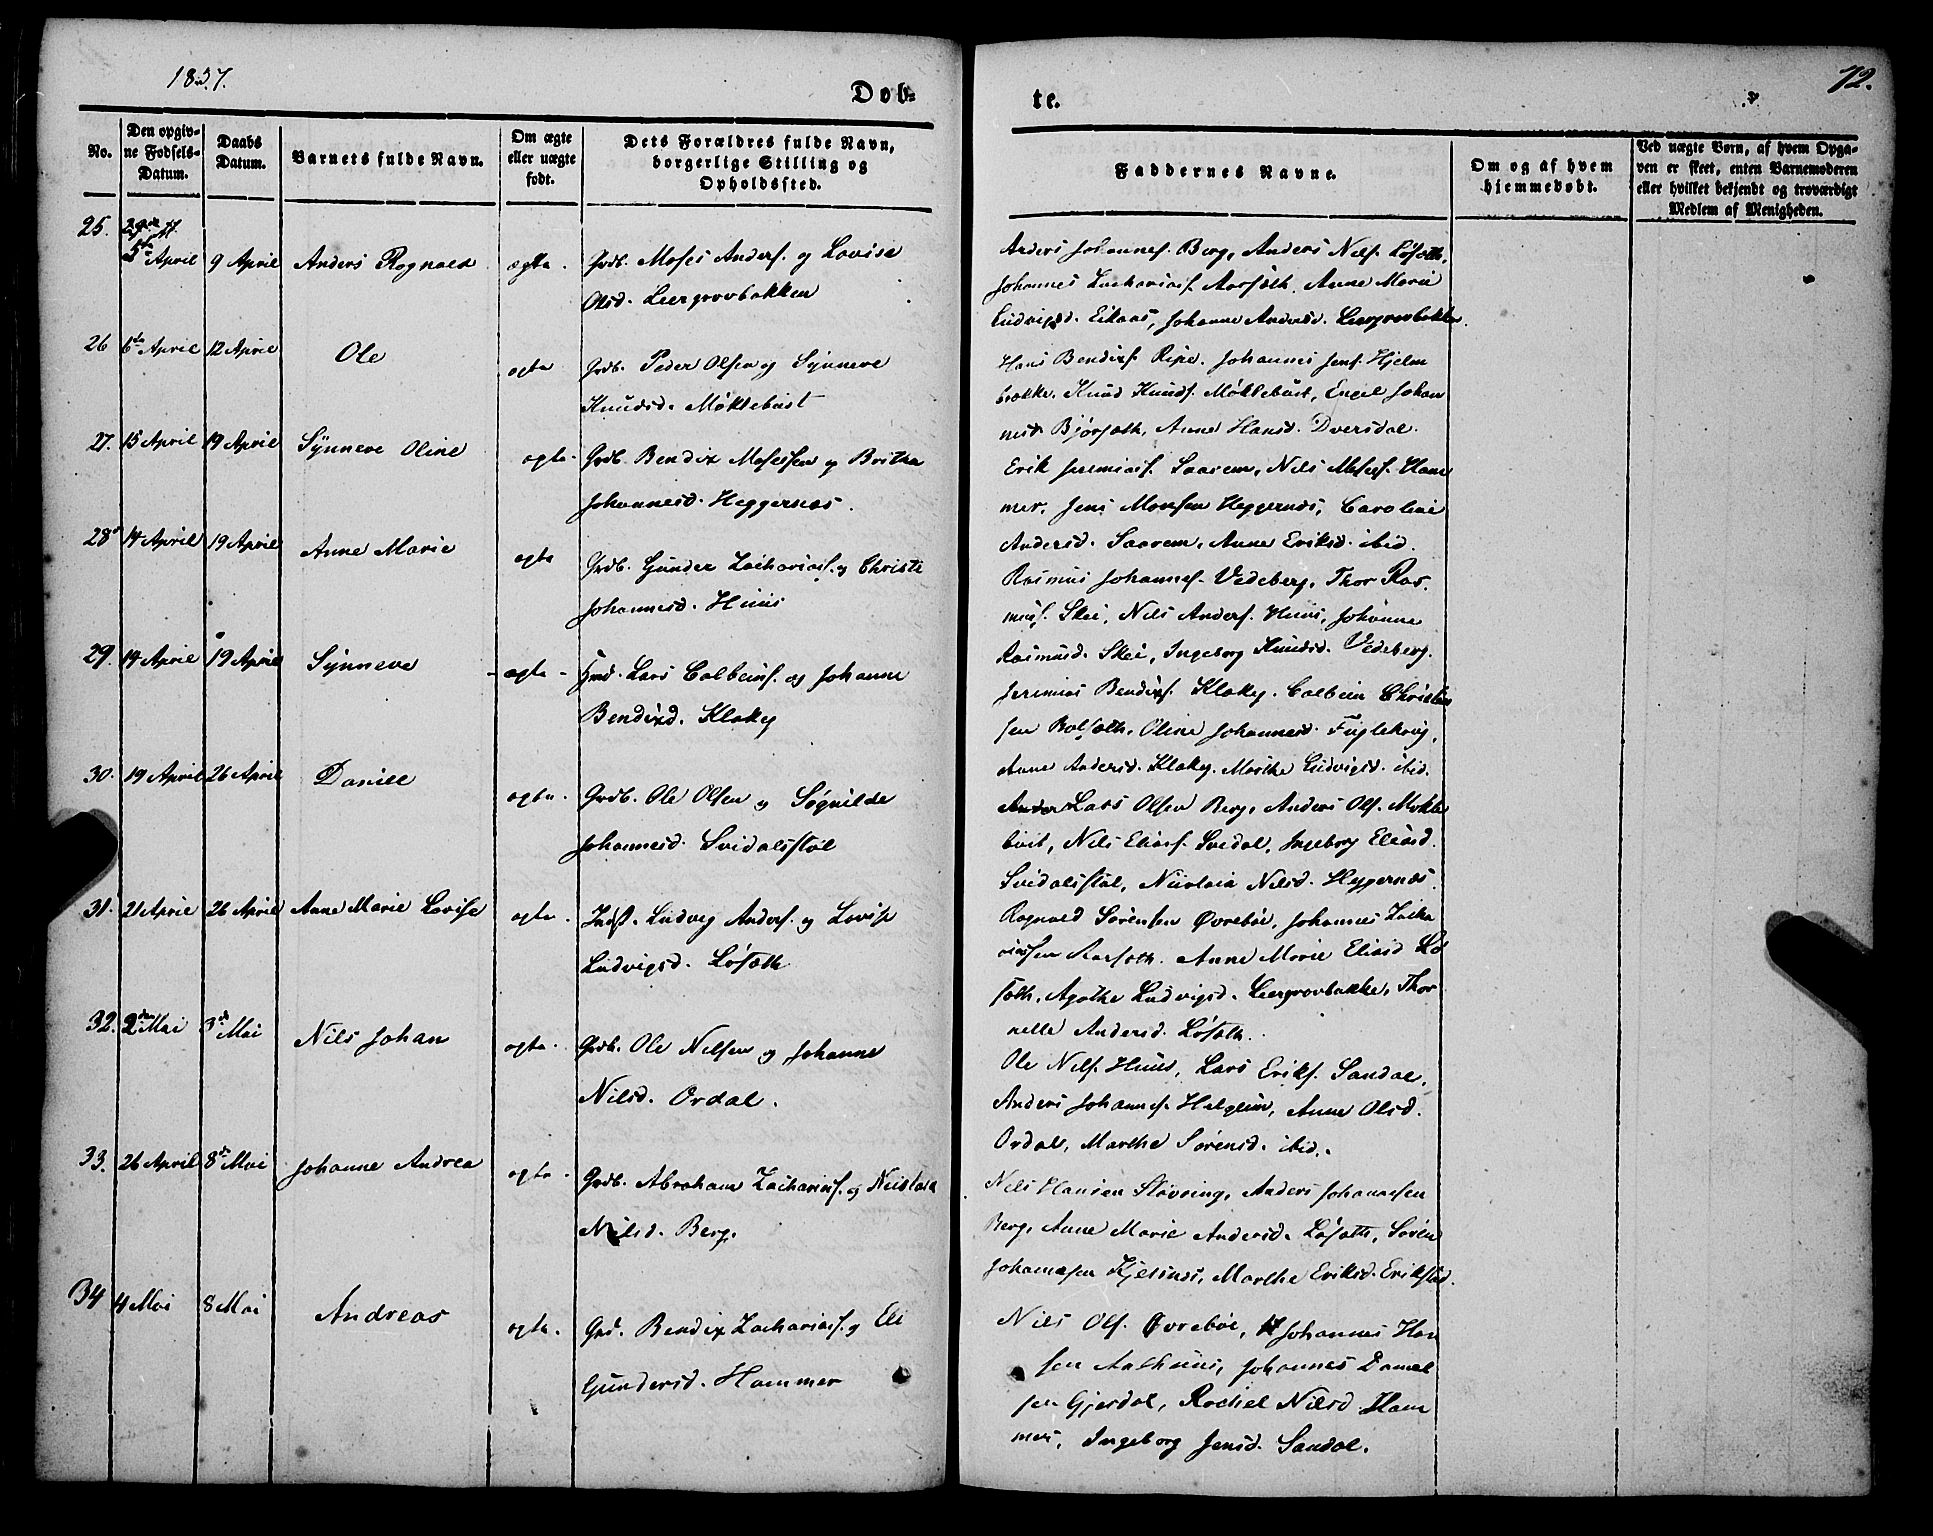 1837.
Døb-
te.
72.
No.
Den opgiv-
ne Fødsels-
Datum.
Daabs
Datum.
Barnets fulde Navn.
Om ægte
eller uægte
født.
Dets Forældres fulde Navn,
borgerlige Stilling og
Opholdssted.
Faddernes Navne.
Om og af hvem
hjemmedøbt.
Ved uægte Børn, af hvem Opga-
ven er skeet, enten Barnemoderen
eller hvilket bekjendt og troværdigt
Medlem af Menigheden.
25.
5te April 9 April Anders Rognald ægte Grdb. Moses Anders. og Lovise
Olsd. Leergrovbakken
Anders Johannes. Berg, Anders Nils. Løsæth,
Johannes Zacharias. Aarsæth, Anne Marie
Ludvigsd. Eikaas, Johanne Andersd. Leergrovbakke.
26 6te April 12 April Ole ægte Grdb. Peder Olsen og Synneve
Knudsd. Møklebust
Hans Bendix. Ripe, Johannes Jens. Hjelm
brække, Knud Knuds. Møklebust, Engel Johan
nesd. Bjørsæth, Anne Hansd. Dversdal.
27. 15 April 19 April Synneve Oline ægte Grdb. Bendix Mosessen og Britha
Johannesd. Heggernæs.
Erik Jeremias. Saarem, Nils Moses. Ham
mer, Jens Monsen Heggernæs, Caroline
Andersd. Saarem, Anne Eriksd. ibid.
28 14 April 19 April Anne Marie ægte Grdb. Gunder Zacharias. og Christi
Johannesd. Huus
Rasmus Johannes. Vedeberg, Thor Ras
mus. Skei, Nils Anders. Huus, Johanne
Rasmusd. Skei, Ingeborg Knudsd. Vedeberg.
29. 14 April 19 April Synneve ægte Hmd. Lars Colbeins. og Johanne
Bendixd. Klakeg
Jeremias Bendix. Klakeg, Colbein Christen
sen Bolsæth, Oline Johannesd. Fuglekøig,
Anne Andersd. Klakeg, Marthe Ludvigsd. ibid.
30. 19 April 26 April Daniel ægte Grdb. Ole Olsen og Søgnilde
Johannesd. Svidalsstøl
Lars Olsen Berg, Anders Ols. Møkle
bust, Nils Elias. Svedal, Ingeborg Eliasd.
Svidalsstøl, Nicolaia Nilsd. Heggernæs.
31. 21 April 26 April Anne Marie Lovise ægte Indst. Ludvig Anders. og Lovise
Ludvigsd. Løsæth
Rognald Sørensen Øvrebøe, Johannes Zacha
riassen Aarsæth, Anne Marie Eliasd. Lø
sæth, Agathe Ludvigsd. Leergrovbakke, Thor
nelle Andersd. Løsæth.
32. 2den Mai 3de Mai Nils Johan ægte Grdb. Ole Nilsen og Johanne
Nilsd. Ordal.
Ole Nils. Huus, Lars Eriks. Sandal,
Anders Johannes. Helgeim, Anne Olsd.
Ordal, Marthe Sørensd. ibid.
33. 26 April 8de Mai Johanne Andrea ægte Grdb. Abraham Zacharias. og Nicolaia
Nilsd. Berg.
Nils Hansen Støvring, Anders Johannesen
Berg, Anne Marie Andersd. Løsæth, Søren
Johannesen Kjelsnes, Marthe Eriksd. Erikstad.
34 4 Mai 8 Mai Andreas ægte Grd. Bendix Zacharias. og Eli
Gundersd. Hammer
Nils Ols. Øvrebøe, Johannes Han
sen Aalhuus, Johannes Daniel
sen Gjesdal, Rachel Nilsd. Ham
mer, Ingeborg Jensd. Sandal.